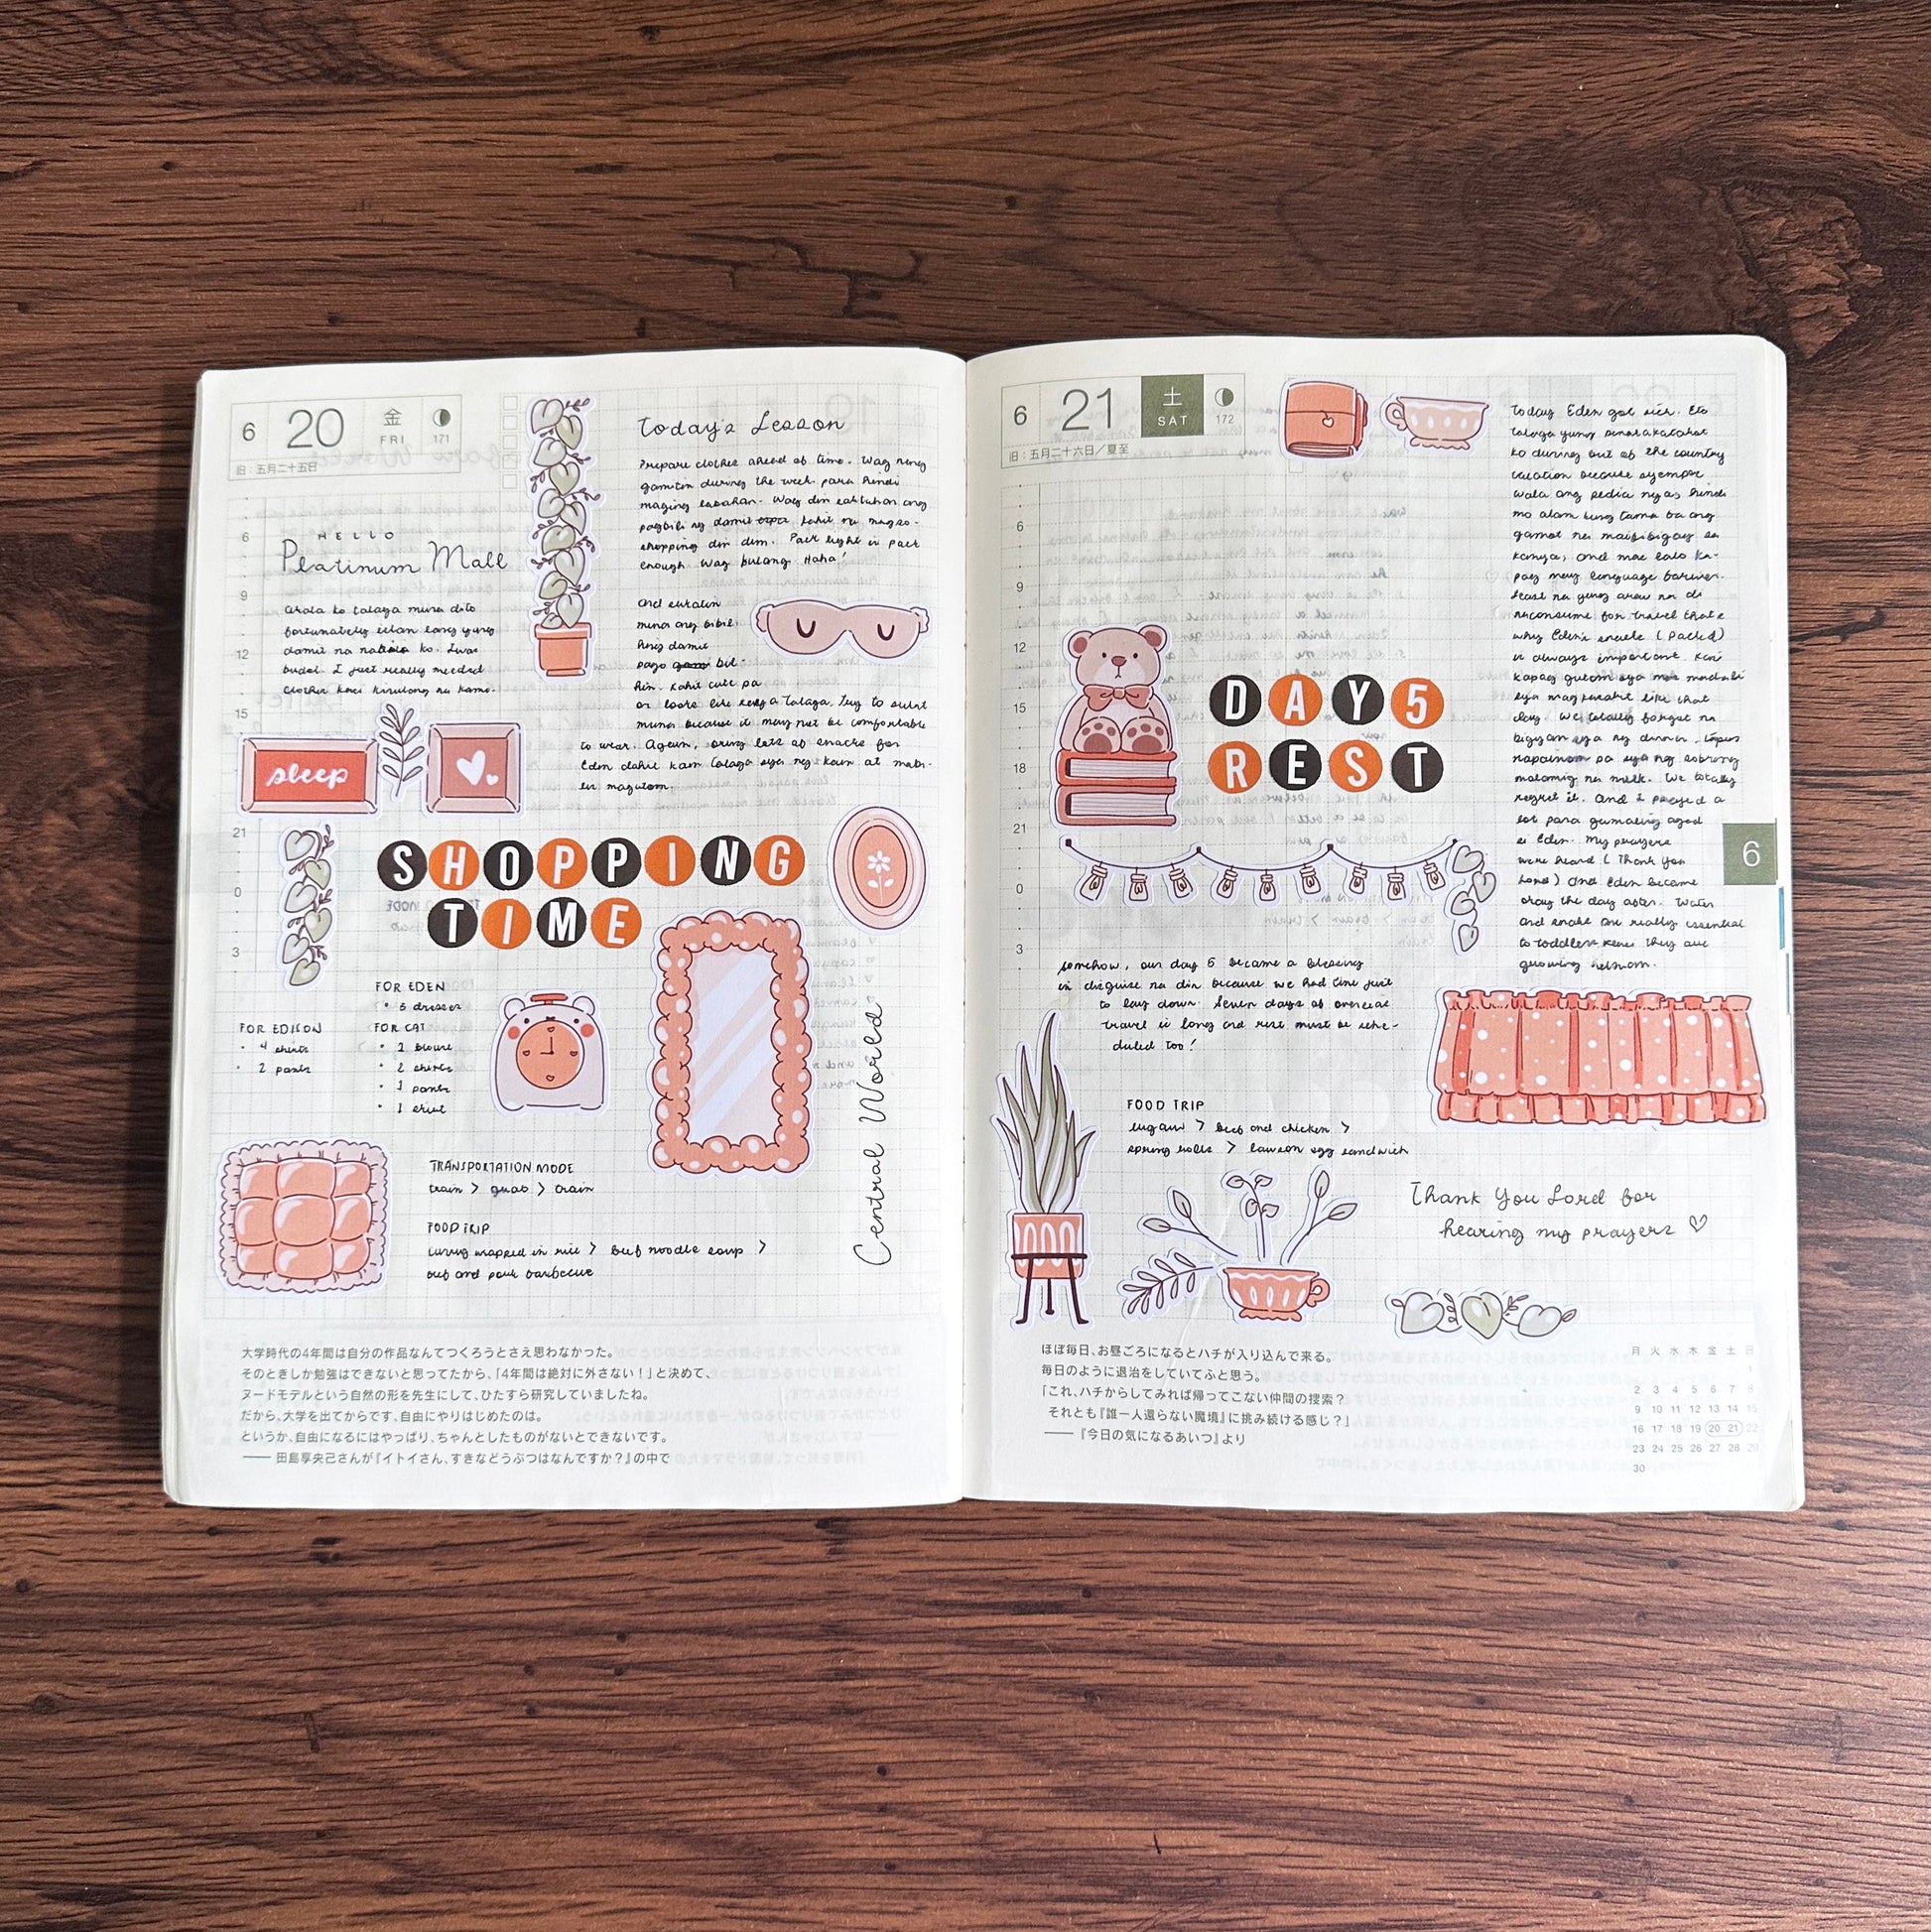 6 20 金 FRI 171
旧:五月二十五日
HELLO
Platinum Mall
Grala ko talaga muna dito
fortunately ilan lang yung
damit na nabili ko. Iwas
budol. I just really needed
clothes kasi kinulang na kami.
Today's Lesson
Prepare clothes ahead of time. Wag nang
gamitin during the week para hindi
maging labahan. Wag din
pagbili ng damit kahit na magso-
shopping din dun. Pack light is pack
enough. Wag kulang. Haha!
And sukatin
muna ang bibil-
hing damit
bago bil-
hin. Kahit cute pa
or looks like talaga. Try to
muna because it may not be comfortable
to wear. Again, bring lots of snacks for
Eden dahil kain talaga sya ng kain at mabi-
lis magutom.
sleep
SHOPPING
TIME
6
9
12
15
21
0
3
FOR EDEN
• 5 dresses
FOR EDISON
• 4 shirts
• 2 pants
FOR CAT
• 2 blouse
• 2 shirts
• 1 pants
• 1
Central World
TRANSPORTATION MODE
train > grab > train
FOOD TRIP
curry wrapped in rice > beef noodle soup >
beef and pork barbecue
大学時代の4年間は自分の作品なんてつくろうとさえ思わなかった。
そのときしか勉強はできないと思ってたから、「4年間は絶対に外さない!」と決めて、
ヌードモデルという自然の形を先生にして、ひたすら研究していましたね。
だから、大学を出てからです、自由にやりはじめたのは。
というか、自由になるにはやっぱり、ちゃんとしたものがないとできないです。
—— 田島享央己さんが『イトイさん、すきなどうぶつはなんですか?』の中で
6 21 土 SAT 172
旧:五月二十六日/夏至
6
9
12
15
18
21
0
3
DAY5
REST
Today Eden got sick. Eto
talaga yung pinakakatakot
ko during out of the country
vacation because syempre
wala ang pedia nya, hindi
mo alam kung tama ba ang
gamot na maibibigay sa
kanya, and mas lalo ka-
pag may language barrier.
Least na yung araw na di
naconsume for travel that's
why Eden's snacks (packed)
is always important. Kasi
kapag gutom sya mas madali
sya magkasakit like that
day. We totally forgot na
bigyan sya ng dinner, tapos
napainom pa sya ng sobrang
malamig na milk. We totally
regret it. And I prayed a
lot para gumaling agad
si Eden. My prayers
were heard (Thank you
Lord) and Eden became
okay the day after. Water
and snake are really essential
to toddlers kasi they are
growing
6
Somehow, our day 5 became a blessing
in disguise na din because we had time just
to lay down. Seven days of overseas
travel is long and rest must be sche-
duled too!
FOOD TRIP
lugaw > beef and chicken >
spring rolls > lawson egg sandwich
Thank You Lord for
hearing my prayers ♡
ほぼ毎日、お昼ごろになるとハチが入り込んで来る。
毎日のように退治をしていてふと思う。
「これ、ハチからしてみれば帰ってこない仲間の捜索?
それとも『誰一人還らない魔境』に挑み続ける感じ?」
—— 『今日の気になるあいつ』より
月 火 水 木 金 土 日
1
2 3 4 5 6 7 8
9 10 11 12 13 14 15
16 17 18 19 20 21 22
23 24 25 26 27 28 29
30